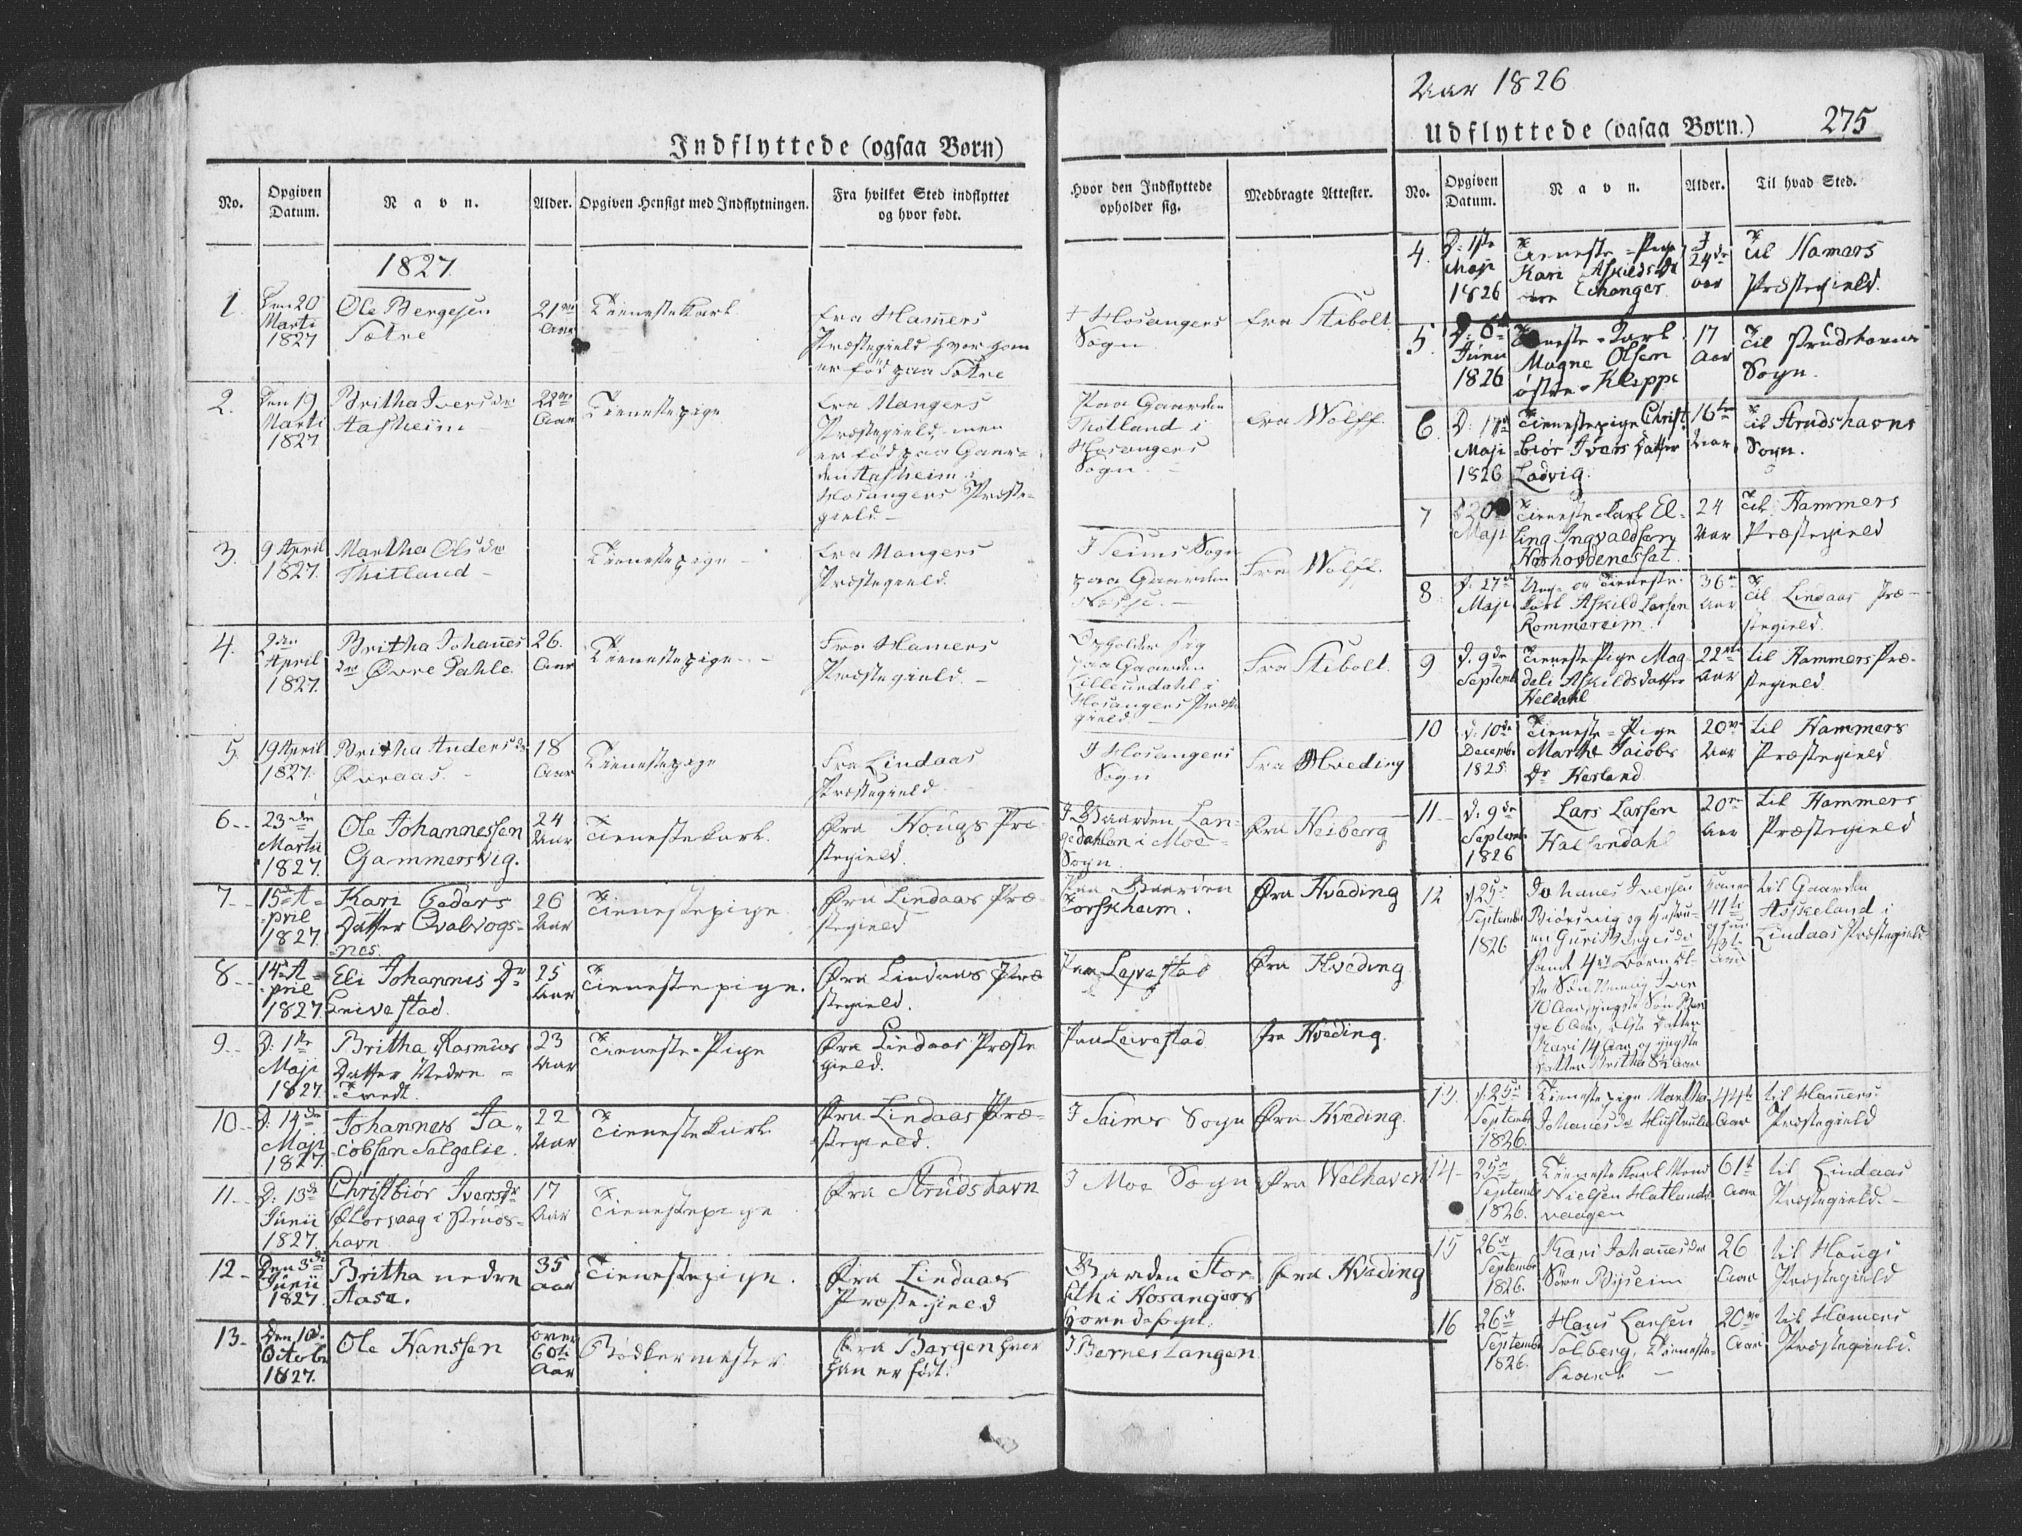 Indflyttede (ogsaa Børn)
No.
Opgiven
Datum.
Navn.
Alder.
Opgiven Hensigt med Indflytningen.
Fra hvilket Sted indflyttet
og hvor født.
Hvor den Indflyttede
opholder sig.
Medbragte Attester.
1827
1.
Den 20
Marti
1827
Ole Bergesen
Sætre
21
Aar
Tienestekarl
fra Hamers
Præstegield hvor han
er fød paa Sætre
I Hosangers
Sogn
fra Stibolt
2.
Den 19
Marti
1827
Britha Iversdr
Aasheim
22
Aar
Tienestepige
fra Mangers
Præstegield, men
er fød paa Gaar-
den Aasheim i
Hosangers Præste-
gield
Paa Gaarden
i
Hosangers
Sogn.
fra Wolff.
3.
9 April
1827.
Martha Olsdr
Thitland
Tienestepige
fra Mangers
Præstegield.
I Seims Sogn
paa Gaarden
Fra Wolff.
4.
2den
April
1827.
Britha Johanes
dr Øvre Dahle.
26.
Aar
Tienestepige
Fra Hamers
Præstegield.
Opholder sig
paa Gaarden
Lilleurdahl i
Hosangers Præste
gield
Fra Stibolt.
5.
19 April
1827.
Britha Andersdr
Øvraas.
18
Aar
Tienestepige
Fra Lindaas
Præstegield.
I Hosangers
Sogn
Fra Hveding
6.
23de
Martii
1827.
Ole Johannessen
Gammersvig.
24
Aar
Tienestekarl.
Fra Hougs Præ-
stegield.
I Gaarden Lan-
gedahlen i Moe
Sogn.
Fra Heiberg
7.
15de A-
pril
1827.
Kari Peders
Datter Qvalvogs-
nes.
26
Aar
Tienestepige
Fra Lindaas Præ-
stegield
Paa Gaarden
Torskheim.
Fra Hveding
8.
14de A-
pril
1827
Eli Johannis Dr
Leivestad.
25
Aar
Tienestepige.
Fra Lindaas Præ
stegield.
Paa Lejvestad
Fra Hveding
9.
D: 1ste
Maji
1827.
Britha Rasmus
Datter Nedre
Tvedt.
23
Aar
Tieneste-Pige
Fra Lindaas Præste
gield.
Paa Leivestad
fra Hveding.
10.
D. 14de
Maji
1827.
Johannes Ja-
cobsen Salgalie.
22
Aar
Tienestekarl
Fra Lindaas Præ-
stegield.
I Seims Sogn
Fra Hveding.
11.
D: 13de
Junii
1827.
Christbiør Iversdr
i Struds-
havn
17
Aar
Tienestepige
Fra Strudshavn
I Moe Sogn
Fra Welhaven
12.
Den 3de
Junii
1827.
Britha nedre
Aase.
35
Aar
Tienestepige.
Fra Lindaas
Præstegield
Gaarden Stor-
i Hosangers
Hovedsogn.
Fra Hveding
13.
Den 10de
Octobr
1827.
Ole Hanssen
over
60ti
Aar
Bødkermester
Fra Bergen hvor
han er født.
I Berneslangen
Aar 1826
275
Udflyttede (ogsaa Børn.)
No.
Opgiven
Datum.
Navn.
Alder.
Til hvad Sted.
4.
D: 1ste
Maji
1826
Tieneste-Pige
Kari Askildsdr
Echanger.
24de
aar
til Hamars
Præstegield.
5.
D: 6te
Junii
1826
Tieneste-Karl
Magne Olsen
østre-Kleppe
17
Aar
til Strudshavns
Sogn.
6.
D: 17de
Maji
1826
Tienestepige Christ-
biør Ivers Datter
Ladvig.
16ten
Aar
til Strudshavns
Sogn.
7
D 20de
Maji
Tieneste-Karl El-
ling Ingvaldsen
24
Aar
til Hammers
Præstegield
8
D. 27de
Maji
Ung- og Tieneste-
karl Askild Larsen
Rommereim.
36
Aar
til Lindaas Præ-
stegield.
9
D. 9de
Septembr
Tieneste Pige Mag-
deli Askilds datter
Heldahl
22
Aar
til Hammers Præ-
stegield.
10
D. 10de
Decembr
1825
Tieneste-Pige
Marthe Jacobs
Dr Herland.
20
Aar
til Hammers
Præstegield.
11
D. 9de
Septembr
1826
Lars Larsen
Halsendahl
20
Aar
til Hammers
Præstegield
12
D 25de
Septembr
1826
Johanes Iversen
Biørsvig og Hustru-
en Guri
samt 4re Børn
10 Aar, yngste Søn
6 Aar, elste Datter
Kari 14 Aar og yngste
Datter Britha 8½ Aar
41ti
til Gaarden
Askeland i
Lindaas Præstegield
13.
D. 25de
Septembr
1826.
Tienestepige Martha
Johanesdr
44
Aar
til Hamers
Præstegield
14
25de
Septembr
1826.
Tienestekarl Mons
Nielsen Hatlands-
vaagen
61
Aar
til Lindaas
Præstegield.
15
26de
Septembr
1826.
Kari Johanesdr
Søre Byseim
26
Aar
til Hougs
Præstegield
16
26de
Septembr
1826.
Hans Larsen
Solberg, Tieneste-
Karl
20
Aar
til Hamers
Præstegield.